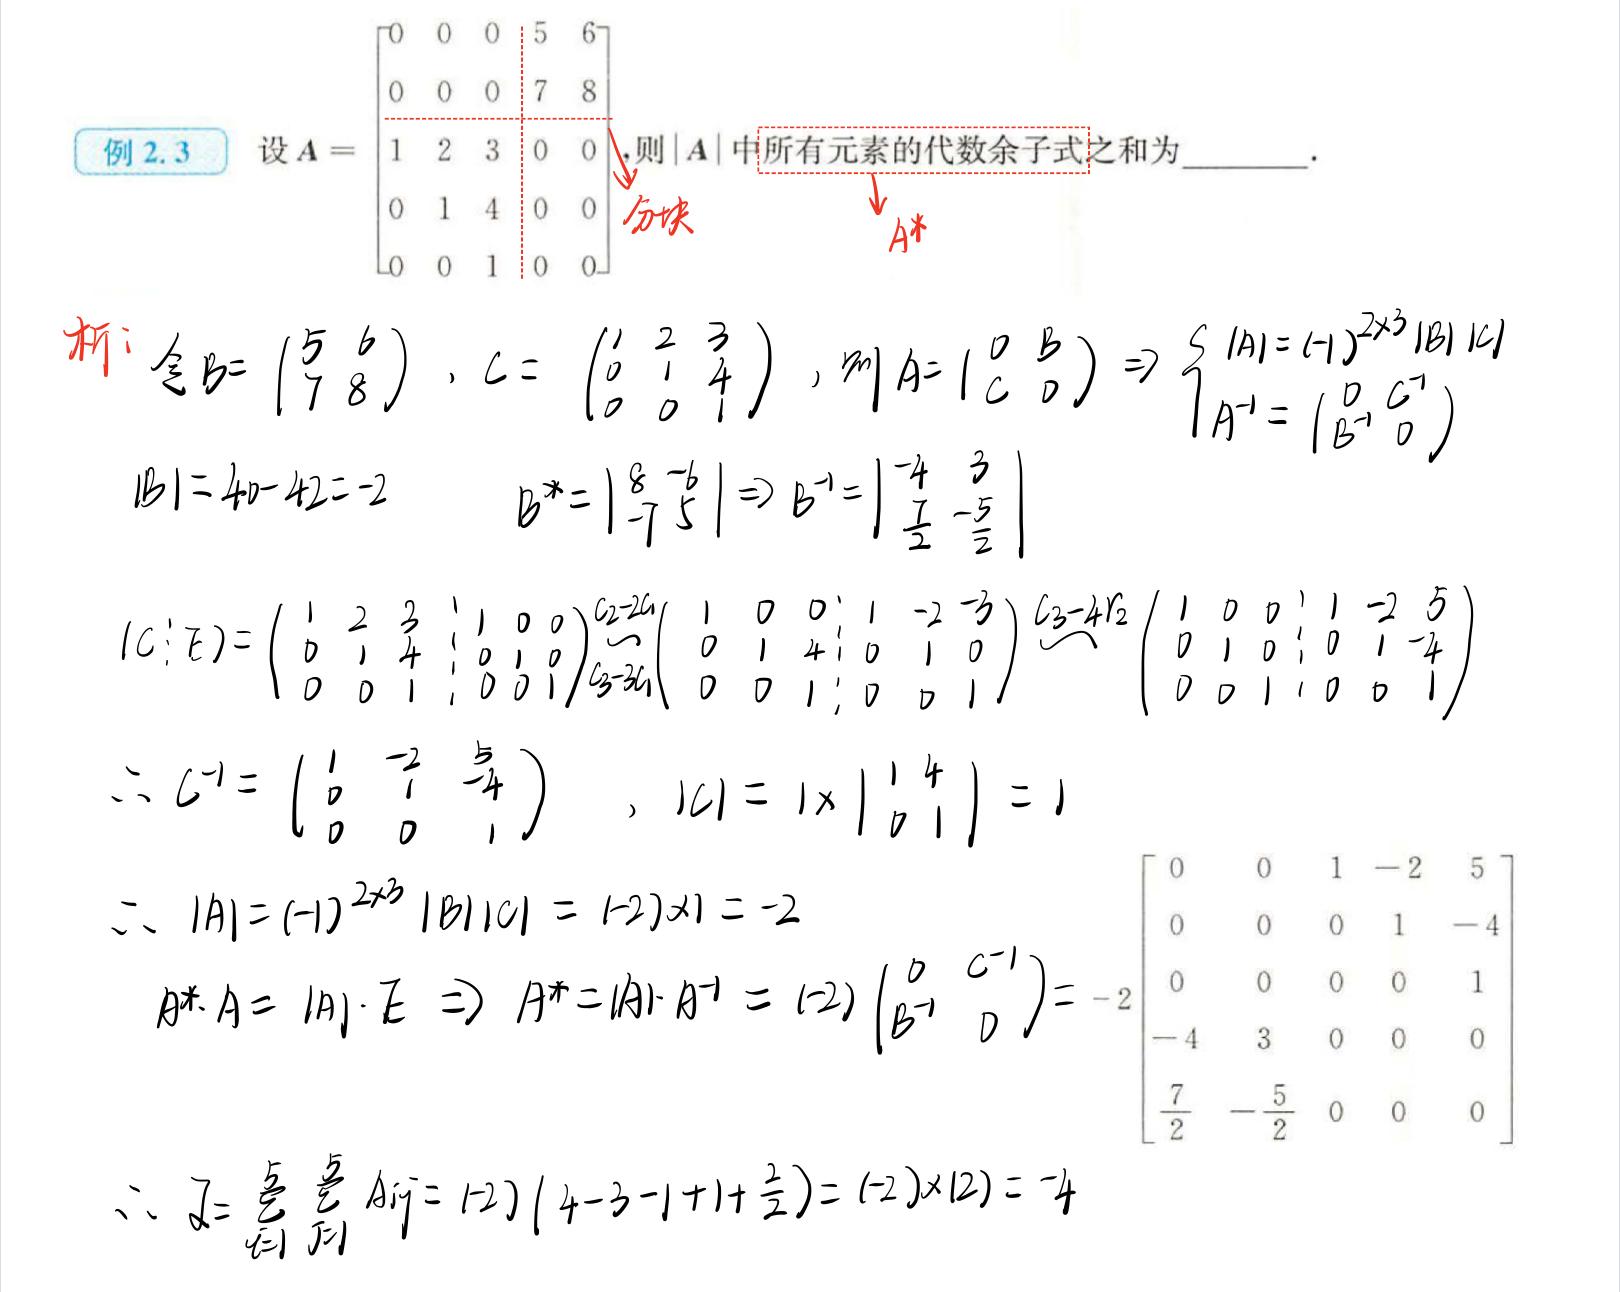 例 2.3 设 A = [0 0 0 5 6; 0 0 0 7 8; 1 2 3 0 0; 0 1 4 0 0; 0 0 1 0 0], 则|A|中所有元素的代数余子式之和为________.
分块
A*
析: 令B= (5 6; 7 8), C= (1 2 3; 0 1 4; 0 0 1), 则A= (0 B; C 0) ⇒ { |A|=(-1)^{2×3}|B||C|
A⁻¹= (0 C⁻¹; B⁻¹ 0)
|B|=40-42=-2 B*=|8 -6; -7 5| ⇒ B⁻¹=|-4 3; 7/2 -5/2|
(C⋮E)= (1 2 3 ⋮ 1 0 0; 0 1 4 ⋮ 0 1 0; 0 0 1 ⋮ 0 0 1) C₂-2C₁ ~ C₃-3C₁ (1 0 0 ⋮ 1 -2 -3; 0 1 4 ⋮ 0 1 0; 0 0 1 ⋮ 0 0 1) C₃-4r₂ ~ (1 0 0 ⋮ 1 -2 5; 0 1 0 ⋮ 0 1 -4; 0 0 1 ⋮ 0 0 1)
∴ C⁻¹= (1 -2 5; 0 1 -4; 0 0 1), |C|= 1×|1 4; 0 1| = 1
∴ |A|=(-1)^{2×3}|B||C| = (-2)×1 = -2
A*·A= |A|·E ⇒ A*=|A|·A⁻¹ = (-2) (0 C⁻¹; B⁻¹ 0) = -2 [0 0 1 -2 5; 0 0 0 1 -4; 0 0 0 0 1; -4 3 0 0 0; 7/2 -5/2 0 0 0]
∴ = Σ_{i=1}^{5} Σ_{j=1}^{5} Aij = (-2)(4-3-1+1+2/2)= (-2)×(2) = -4